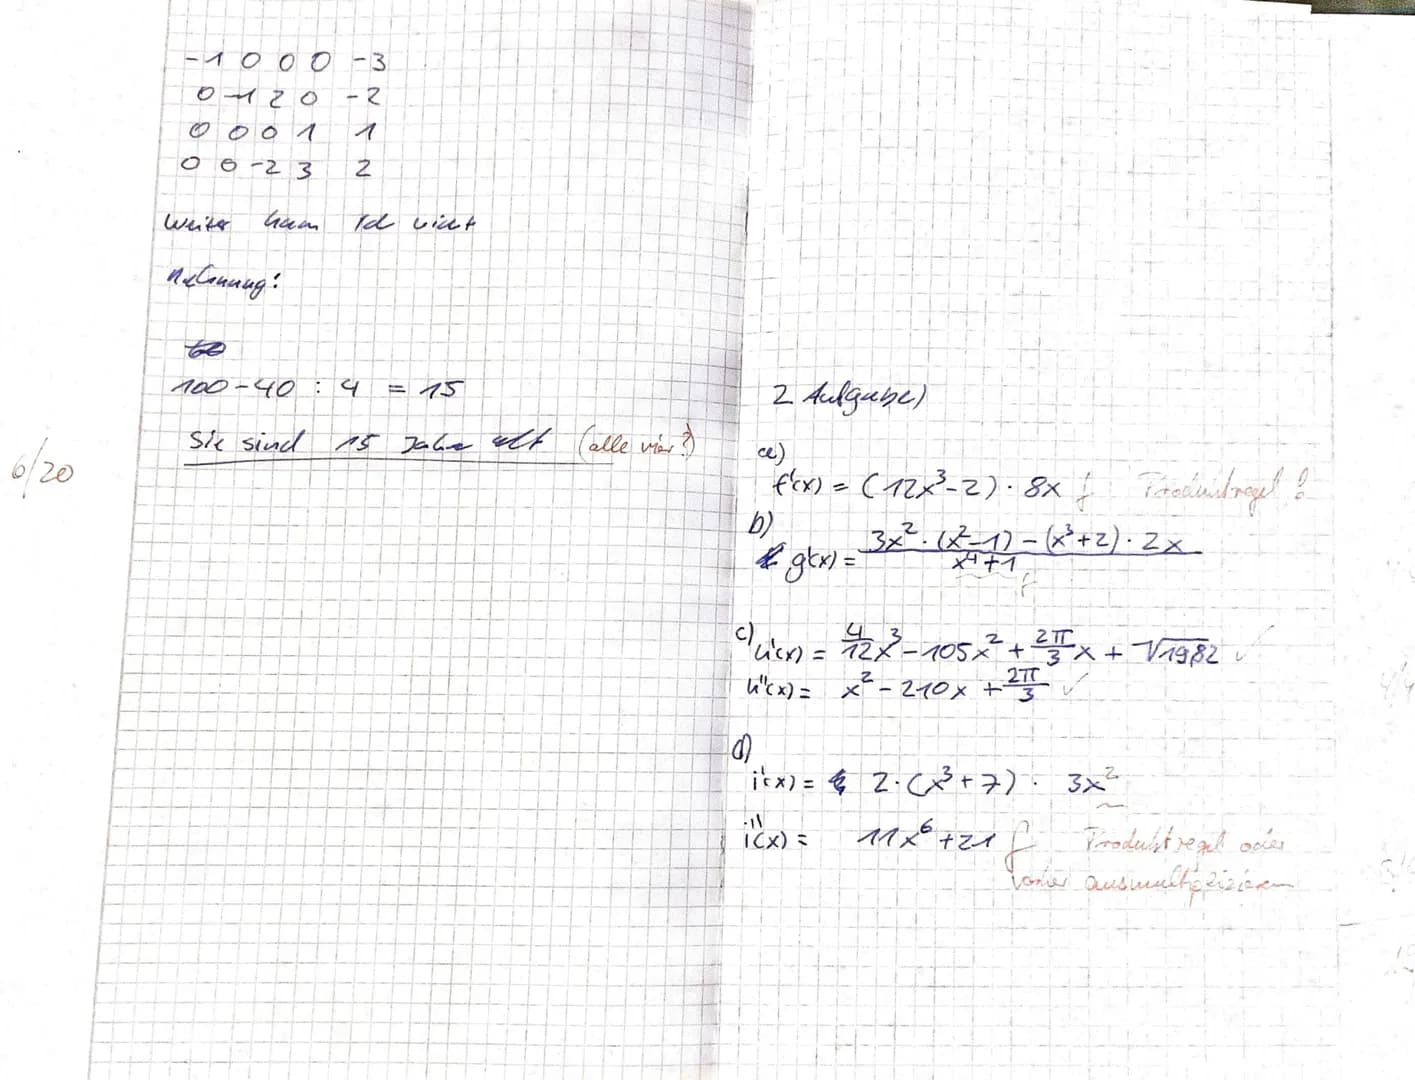 -1 0 0 0 -3
0 -1 2 0 -2
0 0 0 1 1
0 0 -2 3 2
Weiter kam Ich nicht
Rechnung:
100-40 : 4 = 15
Sie sind 15 Jahre alt (alle vier?)
6/20
2 Aufgabe)
a)
f'(x) = (12x³-2) · 8x f Produktregel!
b)
g'(x) = (3x² · (x²-1) - (x³+2) · 2x) / (x⁴+1) f
c)
h'(x) = 4/12 x³ - 105x² + 2π/3 x + √1982 ✓
h''(x) = x² - 210x + 2π/3 ✓
d)
i'(x) = 2·(x³+7) · 3x²
i''(x) = 11x⁶+21 f Produktregel oder
vorher ausmultiplizieren